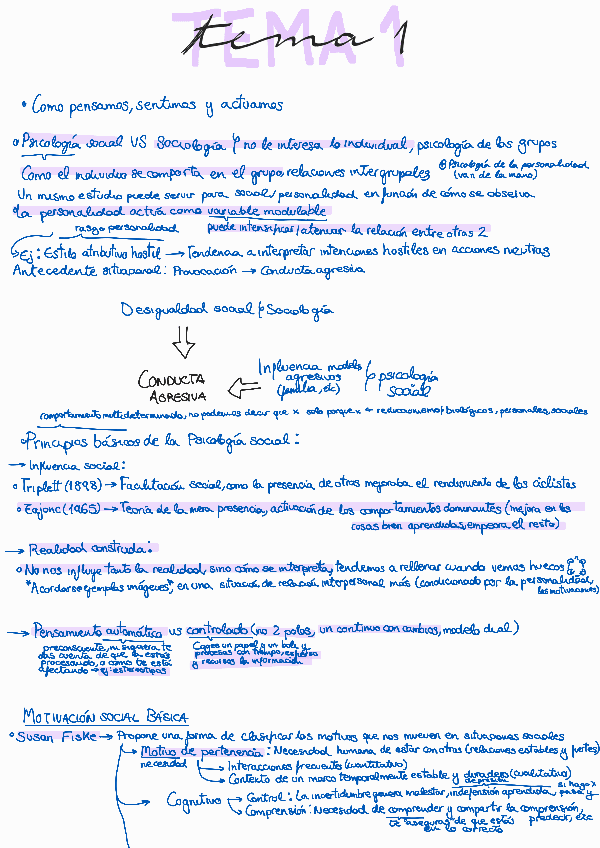 TEMA 1
tema 1
• Como pensamos, sentimos y actuamos
• Psicología social VS Sociología no le interesa lo individual, psicología de los grupos
Como el individuo se comporta en el grupo, relaciones intergrupales
Psicología de la personalidad
(van de la mano)
Un mismo estudio puede servir para social/personalidad en función de cómo se observa
• La personalidad actúa como variable modulable
rasgo personalidad puede intensificar/atenuar la relación entre otras 2
Ej: Estilo atributivo hostil → Tendencia a interpretar intenciones hostiles en acciones neutras
Antecedente situacional: Provocación → Conducta agresiva
Desigualdad social Sociología
CONDUCTA
AGRESIVA
Influencia models
agresivos
(familia, etc)
psicología
social
comportamiento multideterminado, no podemos decir que x solo porque x ← reduccionismo/biológicos, personales, sociales
• Principios básicos de la Psicología social:
→ Influencia social:
• Triplett (1898) → Facilitación social, como la presencia de otros mejoraba el rendimiento de los ciclistas
• Zajonc (1965) → Teoría de la mera presencia, activación de los comportamientos dominantes (mejora en las
cosas bien aprendidas, empeora el resto)
→ Realidad construida:
• No nos influye tanto la realidad, sino cómo se interpreta, tendemos a rellenar cuando vemos huecos
*Acordarse ejemplos imágenes*, en una situación de relación interpersonal más (condicionado por la personalidad,
las motivaciones)
→ Pensamiento automático vs controlado (no 2 polos, un continuo con cambios, modelo dual)
preconsciente, ni siquiera te
das cuenta de que lo estás
procesando, o cómo te está
afectando → ej: estereotipos
Coges un papel y un boli y
procesas con tiempo, esfuerzo
y recursos la información
MOTIVACIÓN SOCIAL BÁSICA
• Susan Fiske → Propone una forma de clasificar los motivos que nos mueven en situaciones sociales
→ Motivo de pertenencia: Necesidad humana de estar con otros (relaciones estables y fuertes)
necesidad → Interacciones frecuentes (cuantitativo)
→ Contexto de un marco temporalmente estable y duradero (cualitativo)
depresión si hago x
pasa y
→ Cognitivo → Control: La incertidumbre genera malestar, indefensión aprendida
→ Comprensión: Necesidad de comprender y compartir la comprensión,
te "aseguras" de que estás predecir, etc
en lo correcto